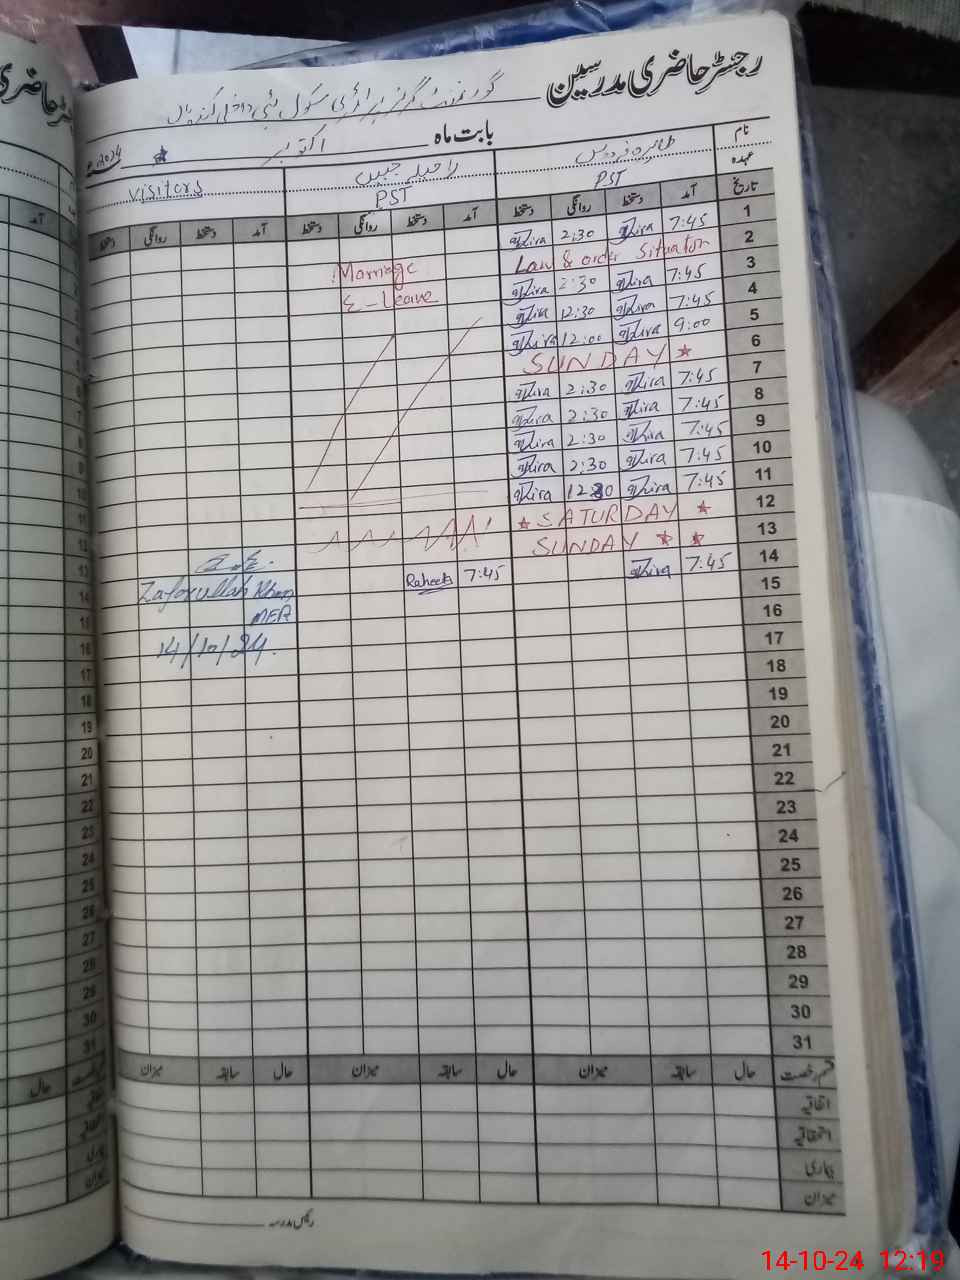 رجسٹر حاضری مدرسین
گورنمنٹ گرلز پرائمری سکول
بابت ماہ اکتوبر 2024
نام طاہرہ فردوس راحیلہ جبیں visitors
عہدہ PST PST
تاریخ آمد دستخط روانگی دستخط آمد دستخط روانگی دستخط آمد دستخط روانگی دستخط
1 7:45 2:30
2 Law & order Situation Marriage
3 7:45 2:30 E-Leave
4 7:45 12:30
5 9:00 12:00
6 SUNDAY
7 7:45 2:30
8 7:45 2:30
9 7:45 2:30
10 7:45 2:30
11 7:45 12:30
12 SATURDAY
13 SUNDAY
14 7:45 7:45 Raheela
Zafarullah Khan
14/10/24.
15
16
17
18
19
20
21
22
23
24
25
26
27
28
29
30
31
قسم رخصت حال سابقہ میزان حال سابقہ میزان حال سابقہ میزان
اتفاقیہ
استحقاقیہ
بیماری
میزان
رئیس مدرسہ
14-10-24 12:19